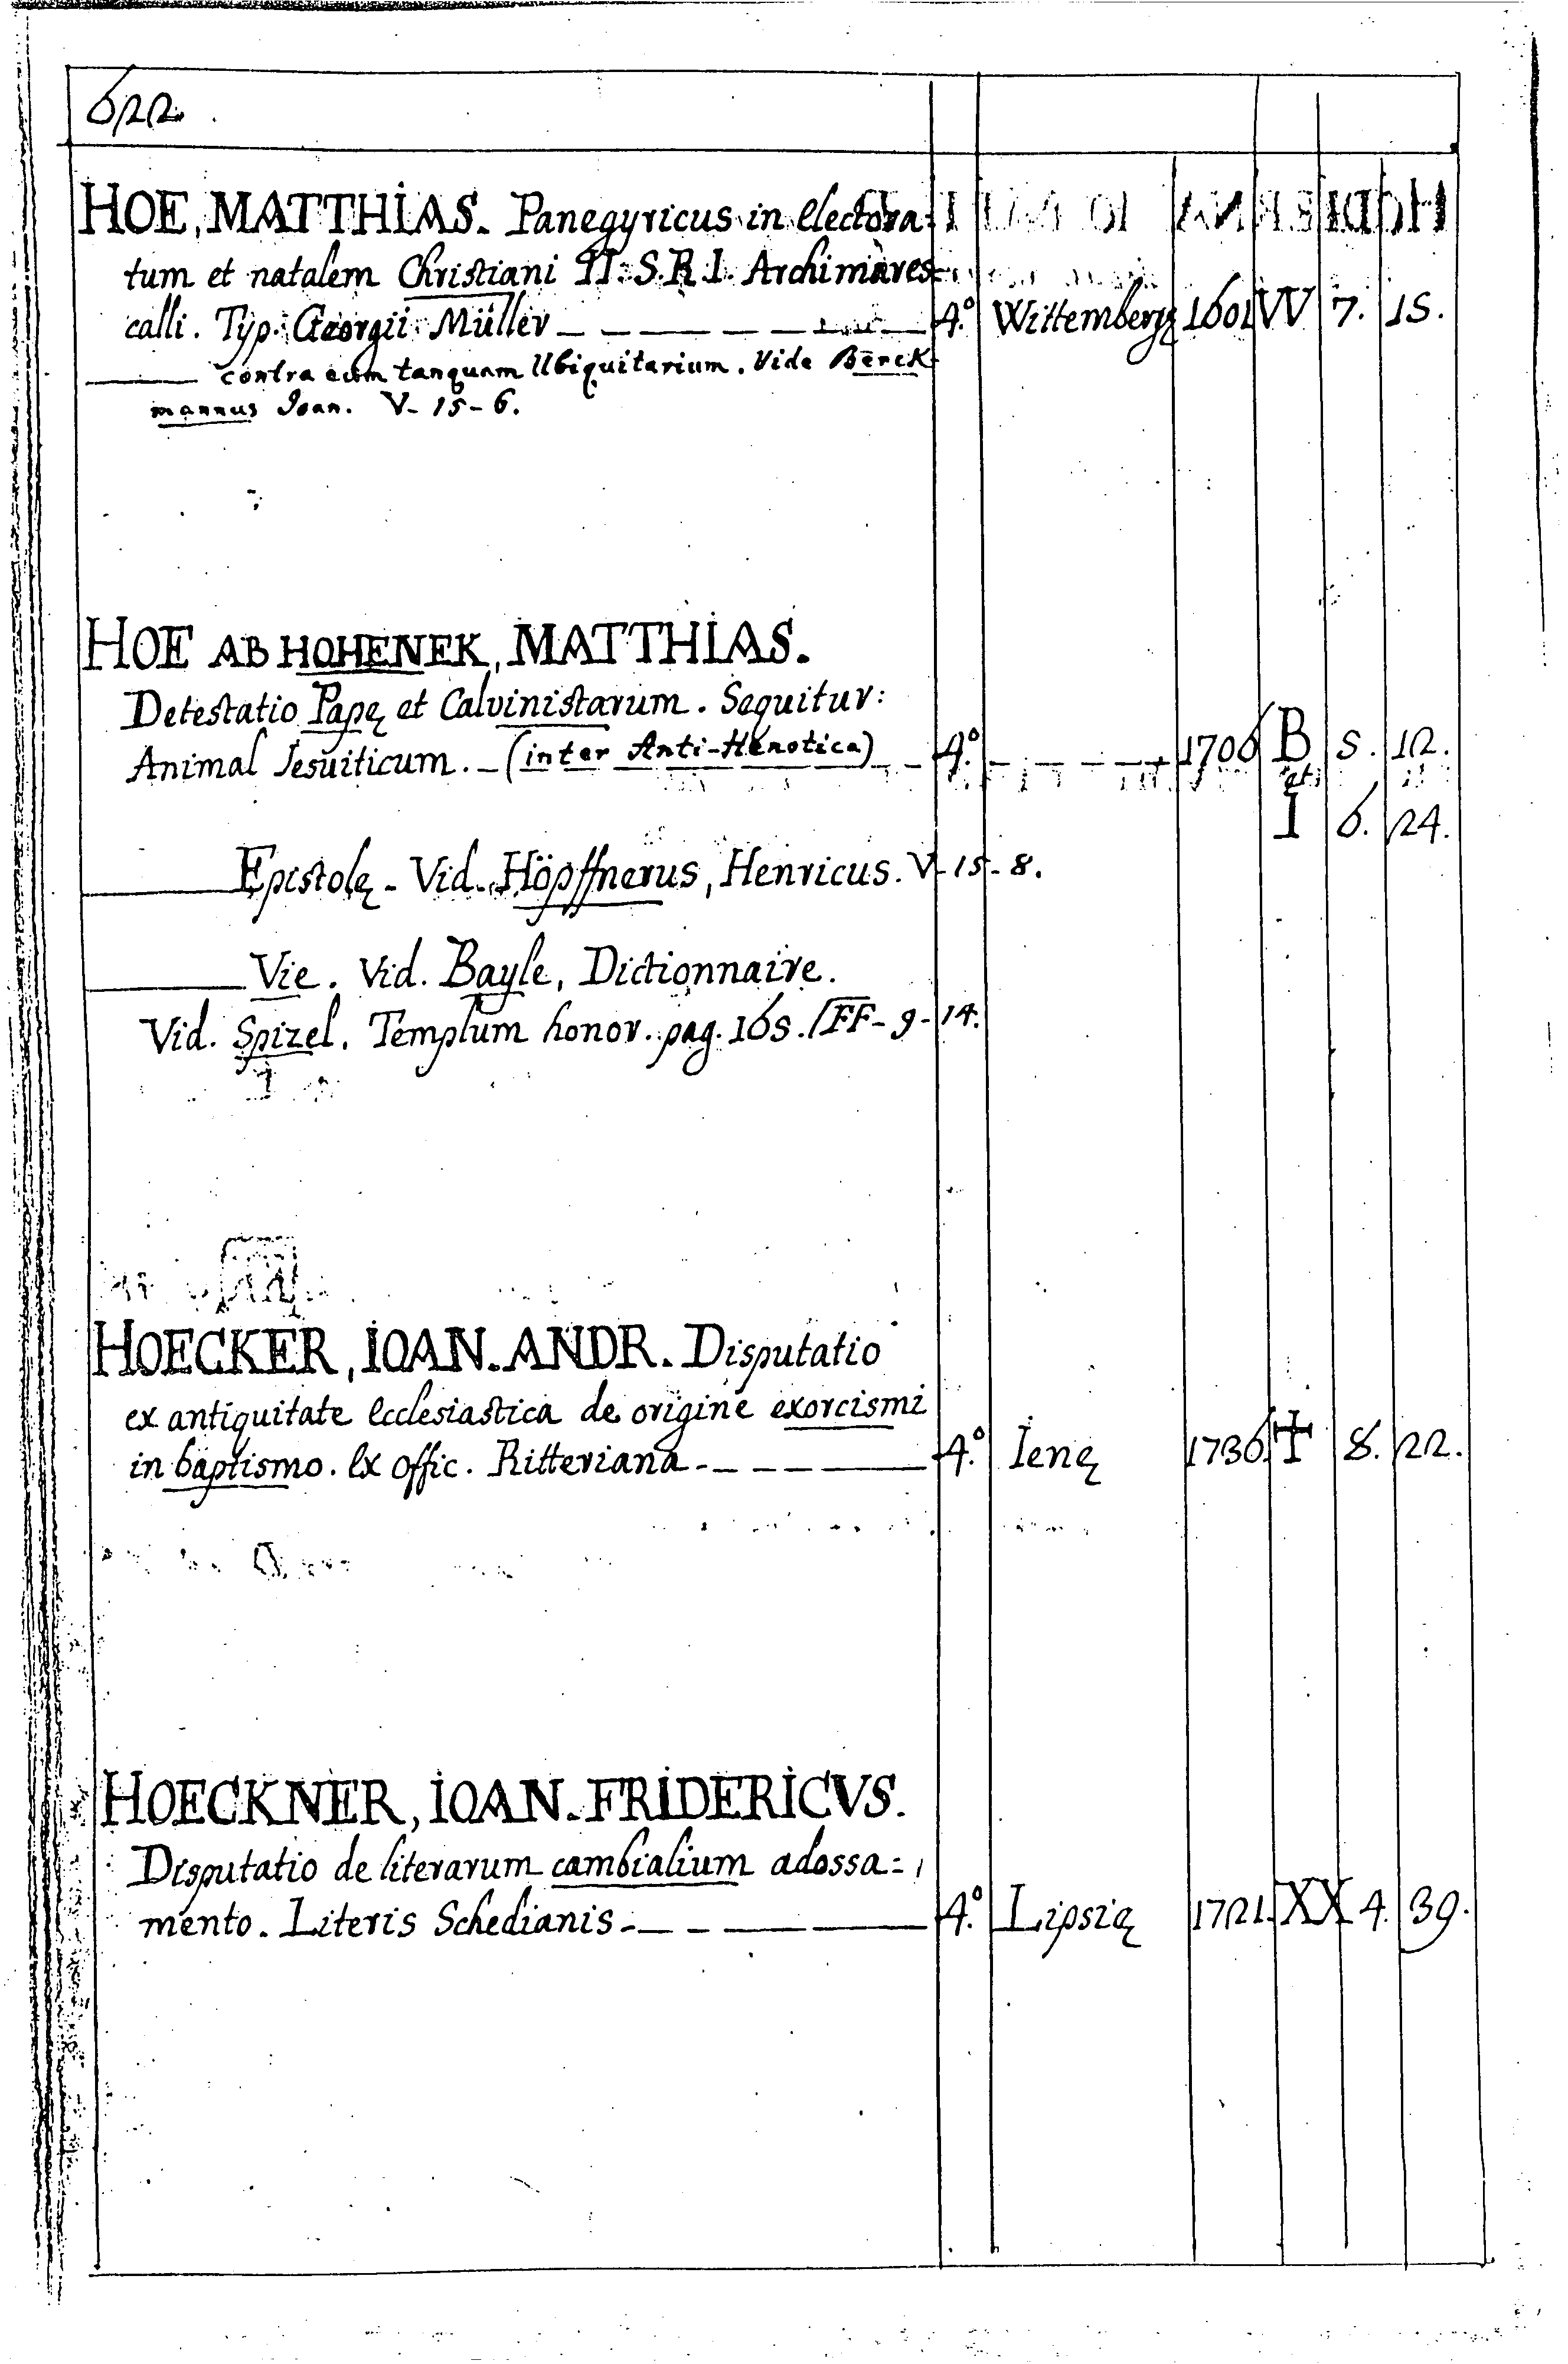 622.
HOE, MATTHIAS. Panegyricus in electora=
tum et natalem Christiani II. S. R. I. Archimares=
calli. Typ. Georgii Müller - - - - - 4.° Wittembergę 1601 VV 7. 15.
——— contra eum tanquam Ubiquitarium. Vide Berck=
mannus Ioan. V-15-6.
HOE AB HOHENEK, MATTHIAS.
Detestatio Papę et Calvinistarum. Sequitur:
Animal Jesuiticum. - (inter Anti-Henotica) - - 4.° - - - - 1706 B 5. 12.
et
I 6. 24.
——— Epistolę - Vid. Höpffnerus, Henricus. V-15-8.
——— Vie. Vid. Bayle, Dictionnaire.
Vid. Spizel. Templum honor. pag. 165. FF-9-14.
HOECKER, IOAN. ANDR. Disputatio
ex antiquitate ecclesiastica de origine exorcismi
in baptismo. ex offic. Ritteriana - - - - 4.° Ienę 1736. T 8. 22.
HOECKNER, IOAN. FRIDERICVS.
Disputatio de literarum cambialium adossa=
mento. Literis Schedianis - - - - 4.° Lipsię 1721. XX 4. 39.